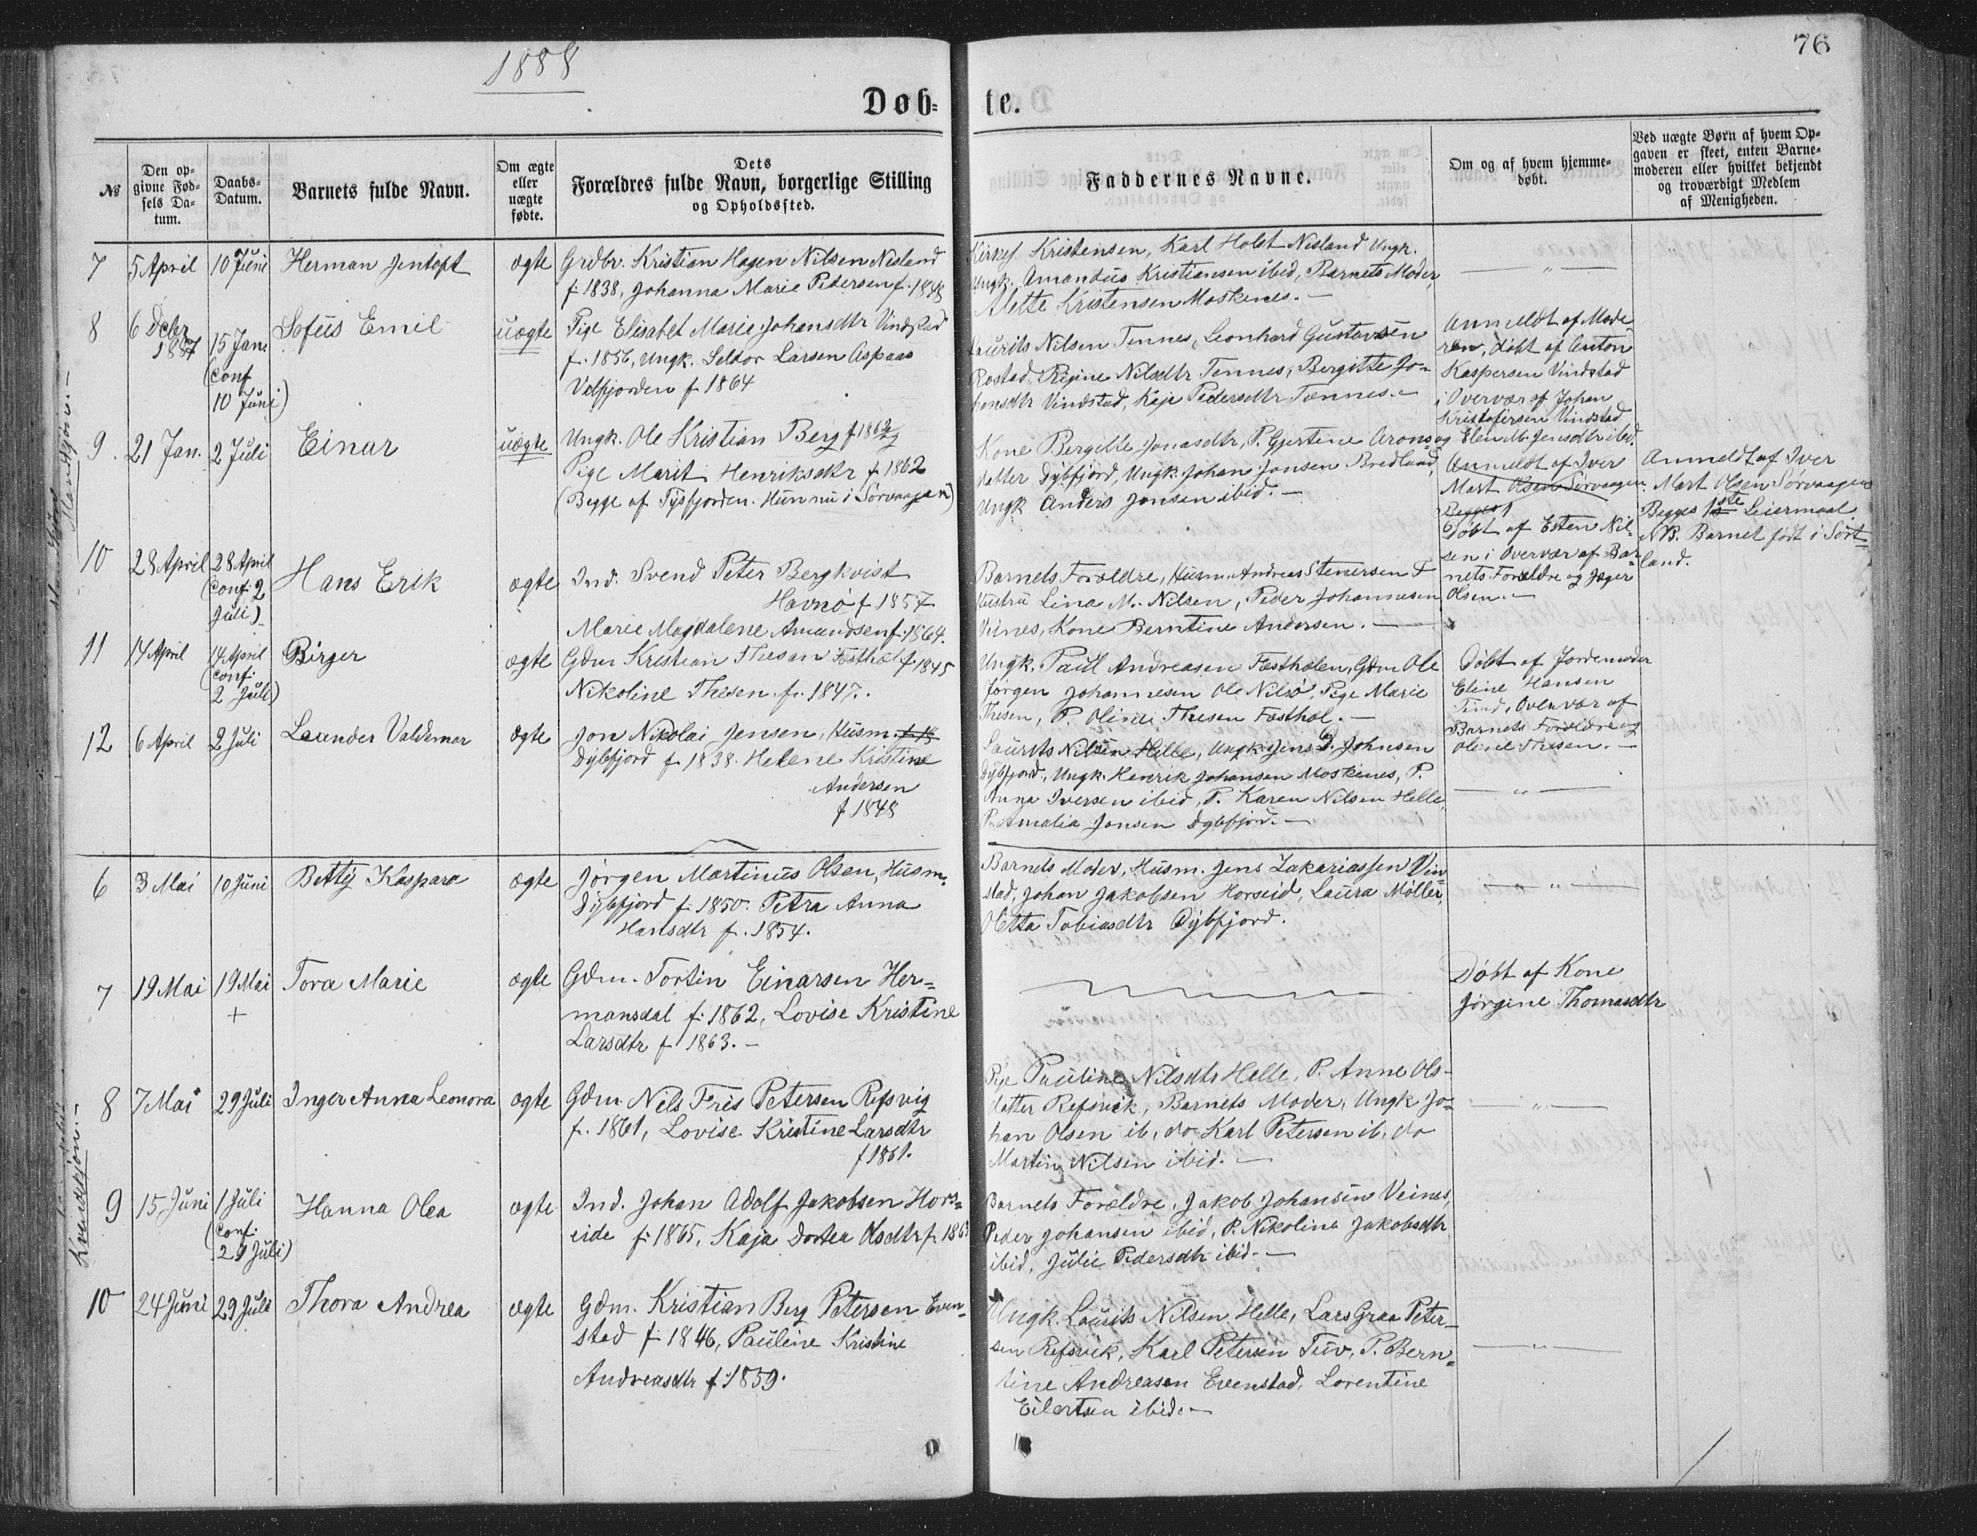 1888
76
Døb-
te.
№
Den op-
givne Fød-
sels Da-
tum.
Daabs-
Datum.
Barnets fulde Navn.
Om ægte
eller
uægte
fødte.
Dets
Forældres fulde Navn, borgerlige Stilling
og Opholdssted.
Faddernes Navne.
Om og af hvem hjemme-
døbt.
Ved uægte Børn af hvem Op-
gaven er skeet, enten Barne-
moderen eller hvilket bekjendt
og troværdigt Medlem
af Menigheden.
Mandkjøn.-
7
5 April
10 Juni
Herman Jentoft
ægte
Grdbr. Kristian Hagen Nilsen Nesland
f. 1838, Johanna Marie Pedersen f. 1848
Kristensen, Karl Holst Nesland Ungk.
Ungk. Amandus Kristiansen ibid, Barnets Moder,
Alette Kristensen Moskenes.-
— " —
8
6 Dcbr
1887
15 Janr
(Conf
10 Juni)
Sofus Emil
uægte
Pige Elisabet Marie Johansdtr Vindstad
f. 1856, Ungk. Seldor Larsen Aspaas
Velfjorden f 1864
Laurits Nilsen Tennes, Leonhard Gustavsen
Rostad, Regine Nilsdtr Tennes, Bergitte Jo-
hansdtr Vindstad, Kaje Pedersdtr Tennes.-
Anmeldt af Mode
ren, døbt af Anton
Kaspersen Vindstad
i Overvær af Johan
Kristofersen Vindstad
og Elen M. Jensdtr ibid.
9
21 Jan.
2 Juli
Einar
uægte
Ungk. Ole Kristian Berg f 1862
Pige Marit Henriksdtr f. 1862
(Begge af Tysfjorden. Hun nu i Sørvaagen)
Kone Bergitte Jonasdtr, P. Gjertine Arons-
datter Dybfjord, Ungk. Johan Jonsen Bredland,
Ungk Anders Jonsen ibid.-
Anmeldt af Iver
Mart Olsen Sørvaagen
Begges 1
Anmeldt af Iver
Mart Olsen Sørvaagen
Begges 1ste Leiermaal.
NB. Barnet født i Sort-
land.
10
28 April
28 April
(Conf: 2
Juli)
Hans Erik
ægte
Ind. Svend Peter Bergkvist
Havnø f 1857
Marie Magdalene Amundsen f. 1864.
Barnets Forældre, Husm. Andreas Stenersen &
Hustru Lina M. Nilsen, Peder Johannesen
Veines, Kone Berntine Andersen.-
Døbt af Esten Nil-
sen i Overvær af Bar-
nets Forældre og Jæger
Olsen.-
11
14 April
14 April
(Conf:
2 Juli)
Birger
ægte
Gdm Kristian Thesen Festhæl f. 1845
Nikoline Thesen f. 1847.
Ungk. Paul Andreasen Festhælen, Gdm Ole
Jørgen Johannesen Ole Nilsø, Pige Marie
Thesen, P. Oline Thesen Festhæl.-
Døbt af Jordemoder
Eline Hansen
Tind, Overvær af
Barnets Forældre og
Oline Thesen.-
12
6 April
2 Juli
Leander Valdemar
ægte
Jon Nikolai Jensen, Husm. f. 18
Dybfjord f 1838. Helene Kristine
Andersen
f 1848
Laurits Nilsen Helle, Ungk. Jens D. Johnsen
Dybfjord, Ungk. Henrik Johansen Moskenes, P.
Anna Iversen ibid, P. Karen Nilsen Helle,
P. Amalia Jonsen Dybfjord.-
— " —
Kvindekjøn.-
6
3 Mai
10 Juni
Betty Kaspara
ægte
Jørgen Martinus Olsen, Husm.
Dybfjord f. 1850. Petra Anna
Hansdtr f. 1854.
Barnets Moder, Husm. Jens Zakariassen Vin-
stad, Johan Jakobsen Horseid, Laura Møller,
Oletta Tobiasdtr Dybfjord.
— " —
7
19 Mai
19 Mai
+
Tora Marie
ægte
Gdm. Tortin Einarsen Her-
mansdal f. 1862, Lovise Kristine
Larsdtr f 1863.-
Døbt af Kone
Jørgine Thomasdtr
8
7 Mai
29 Juli
Inger Anna Leonora
ægte
Gdm. Nels Fris Petersen Refsvig
f. 1861, Lovise Kristine Larsdtr
f 1861.
Pige Pauline Nilsdtr Helle, P. Anne Ols-
datter Refsvik, Barnets Moder, Ungk Jo-
han Olsen ib, do Karl Petersen ib, do
Martin Nilsen ibid.-
— " —
9
15 Juni
1 Juli
(Conf:
29 Juli)
Hanna Olea
ægte
Ind. Johan Adolf Jakobsen Hors-
eide f. 1865, Kaja Dortea Olsdtr f. 186
Barnets Forældre, Jakob Johansen Veines,
Peder Johansen ibid, P. Nikoline Jakobsdtr
ibid, Julie Pedersdtr ibid.-
10
24 Juni
29 Juli
Thora Andrea
ægte
Gdm. Kristian Berg Petersen Even-
stad f. 1846, Pauline Kristine
Andreasdtr f 1859.
Ungk. Laurits Nilsen Helle, Lars Graa Peter-
sen Refsvik, Karl Petersen Tuv, P. Bern-
tine Andreasen Evenstad, Lorentine
Eilertsen ibid.-
— " —